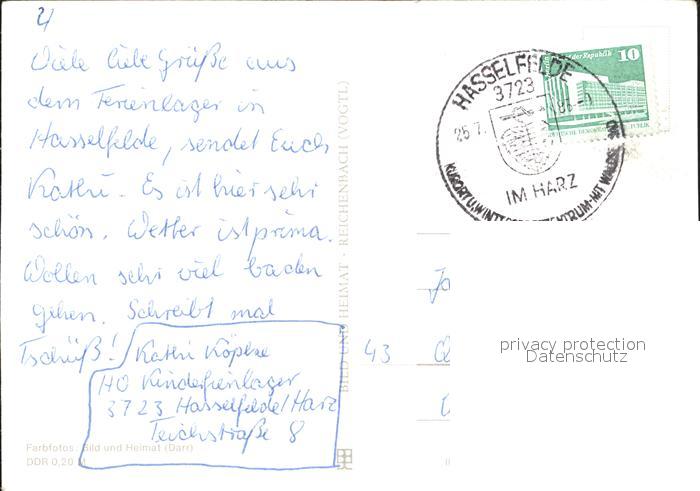 Viele liebe Grüße aus
dem Ferienlager in
Hasselfelde, sendet Euch
Kathi. Es ist hier sehr
schön. Wetter ist prima.
Wollen sehr viel baden
gehen. Schreibt mal
Tschüß!
Kathi Köpke
HO Kinderferienlager
3723 Hasselfelde/Harz
Teichstraße 8
Farbfotos: Bild und Heimat (Darr)
DDR 0,20 M
BILD UND HEIMAT · REICHENBACH (VOGTL)
HASSELFELDE
3723
25.7.
IM HARZ
KURORT U. WINTERSPORTZENTRUM · MIT
der Republik 10
DEUTSCHE DEMOKRATISCHE REPUBLIK
43
privacy protection
Datenschutz